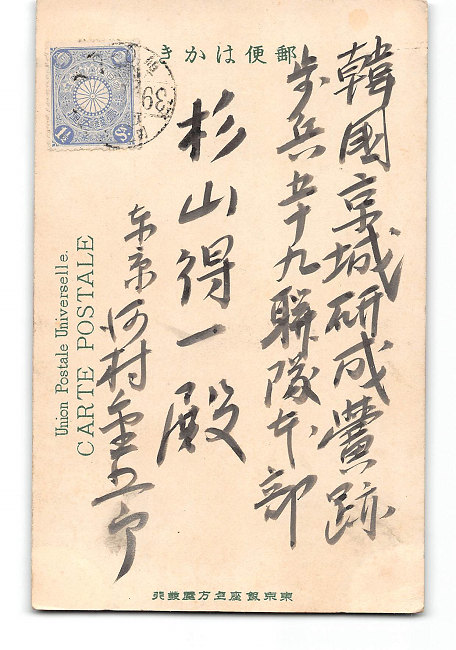 郵便はかき
韓國京城研成營跡
歩兵五十九聯隊本部
杉山得一殿
東京 河村重五郎
Union Postale Universelle.
CARTE POSTALE
1½
Sn.
39
東京銀座上方屋發行